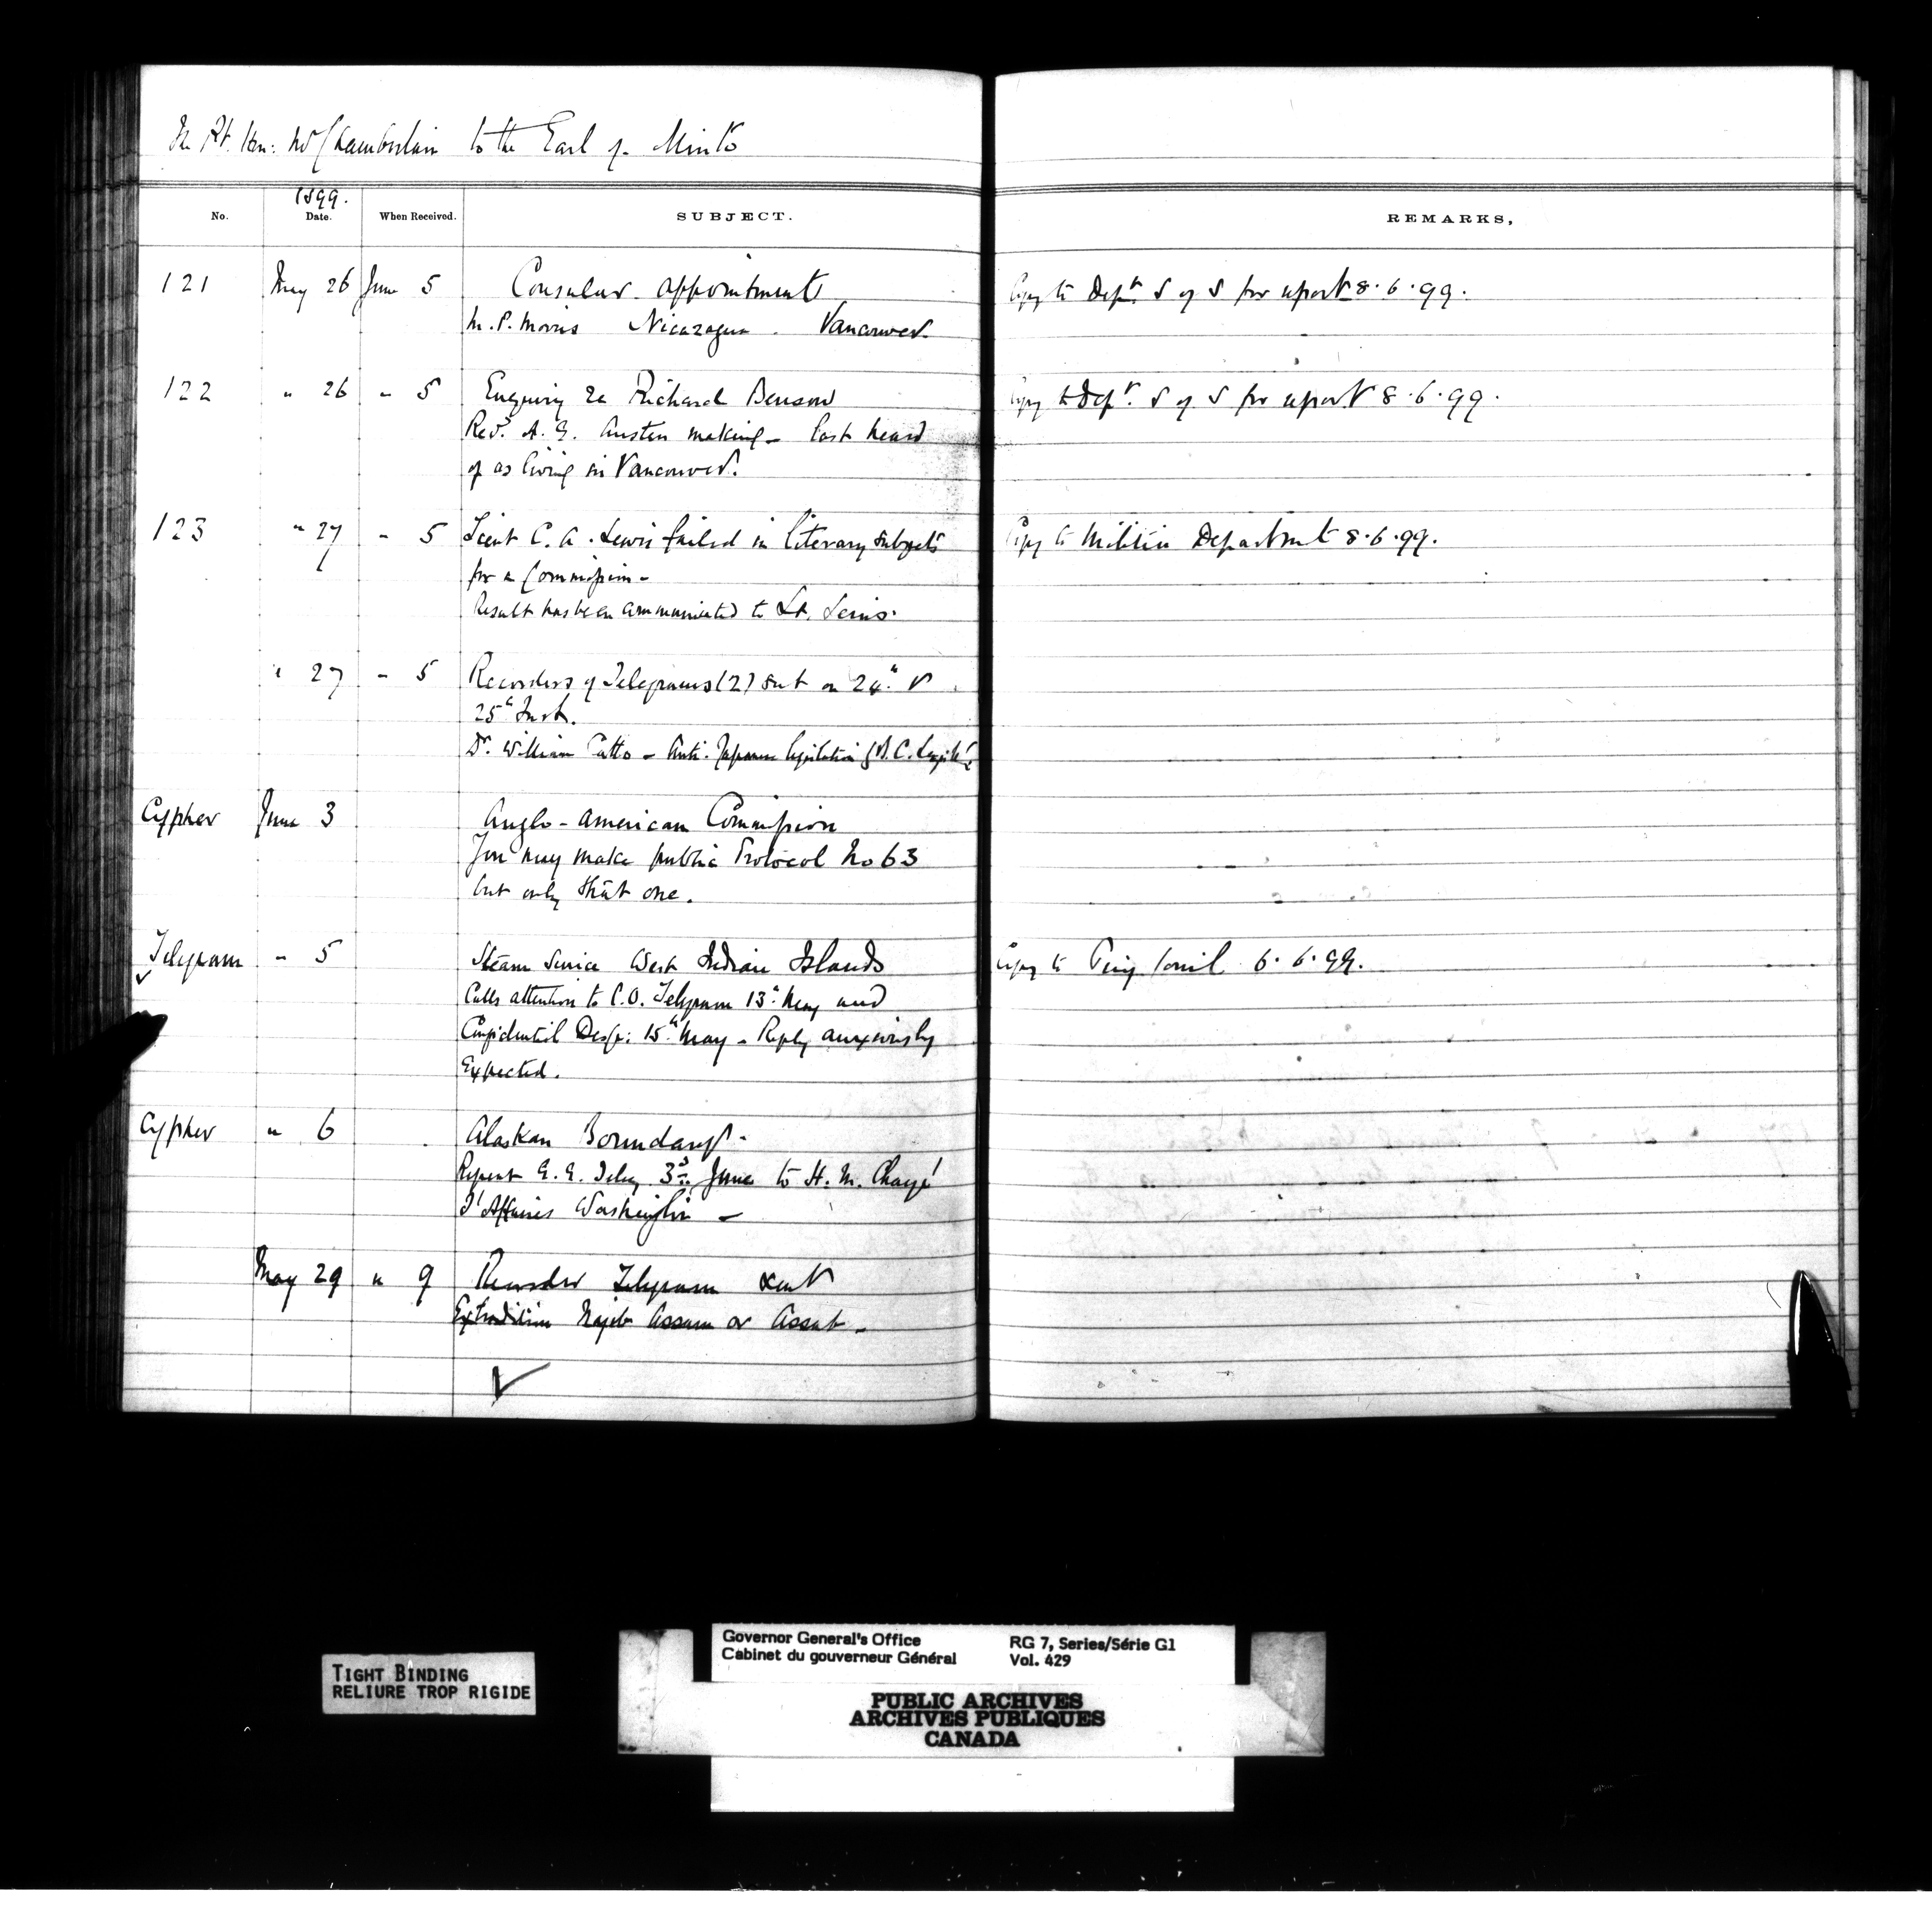 The Rt. Hon: Mr Chamberlain to the Earl of Minto
1899.
No. Date. When Received. SUBJECT. REMARKS.
121 May 26 June 5 Consular appointment Copy to Dept S of S for report 8.6.99.
M. P. Morris Nicaragua. Vancouver.
122 " 26 " 5 Enquiry re Richard Benson Copy to Dept. S of S for report 8.6.99.
Revd. A. G. Austen making – last heard
of as living in Vancouver.
123 " 27 " 5 Lieut C. A. Lewis failed in literary subjects Copy to Militia Department 8.6.99.
for a Commission –
Result has been communicated to Lt. Lewis.
" 27 " 5 Recorders of Telegrams (2) sent on 24th &
25th Inst.
Dr. William Patto – Anti-Japanese legislation of B.C.
Cypher June 3 Anglo-American Commission
You may make public Protocol No 63
but only that one.
Telegram " 5 Steam Service West Indian Islands Copy to Privy Council 6.6.99.
Calls attention to C.O. Telegram 13th May and
Confidential Desp: 15th May – Reply anxiously
expected.
Cypher " 6 Alaskan Boundary –
Repeat G. G. Teleg 3rd June to H. M. Chargé
d'Affaires Washington –
May 29 " 9 Recorder Telegram sent
Extradition Najib Assam or Assat –
TIGHT BINDING
RELIURE TROP RIGIDE
Governor General's Office RG 7, Series/Série G1
Cabinet du gouverneur Général Vol. 429
PUBLIC ARCHIVES
ARCHIVES PUBLIQUES
CANADA